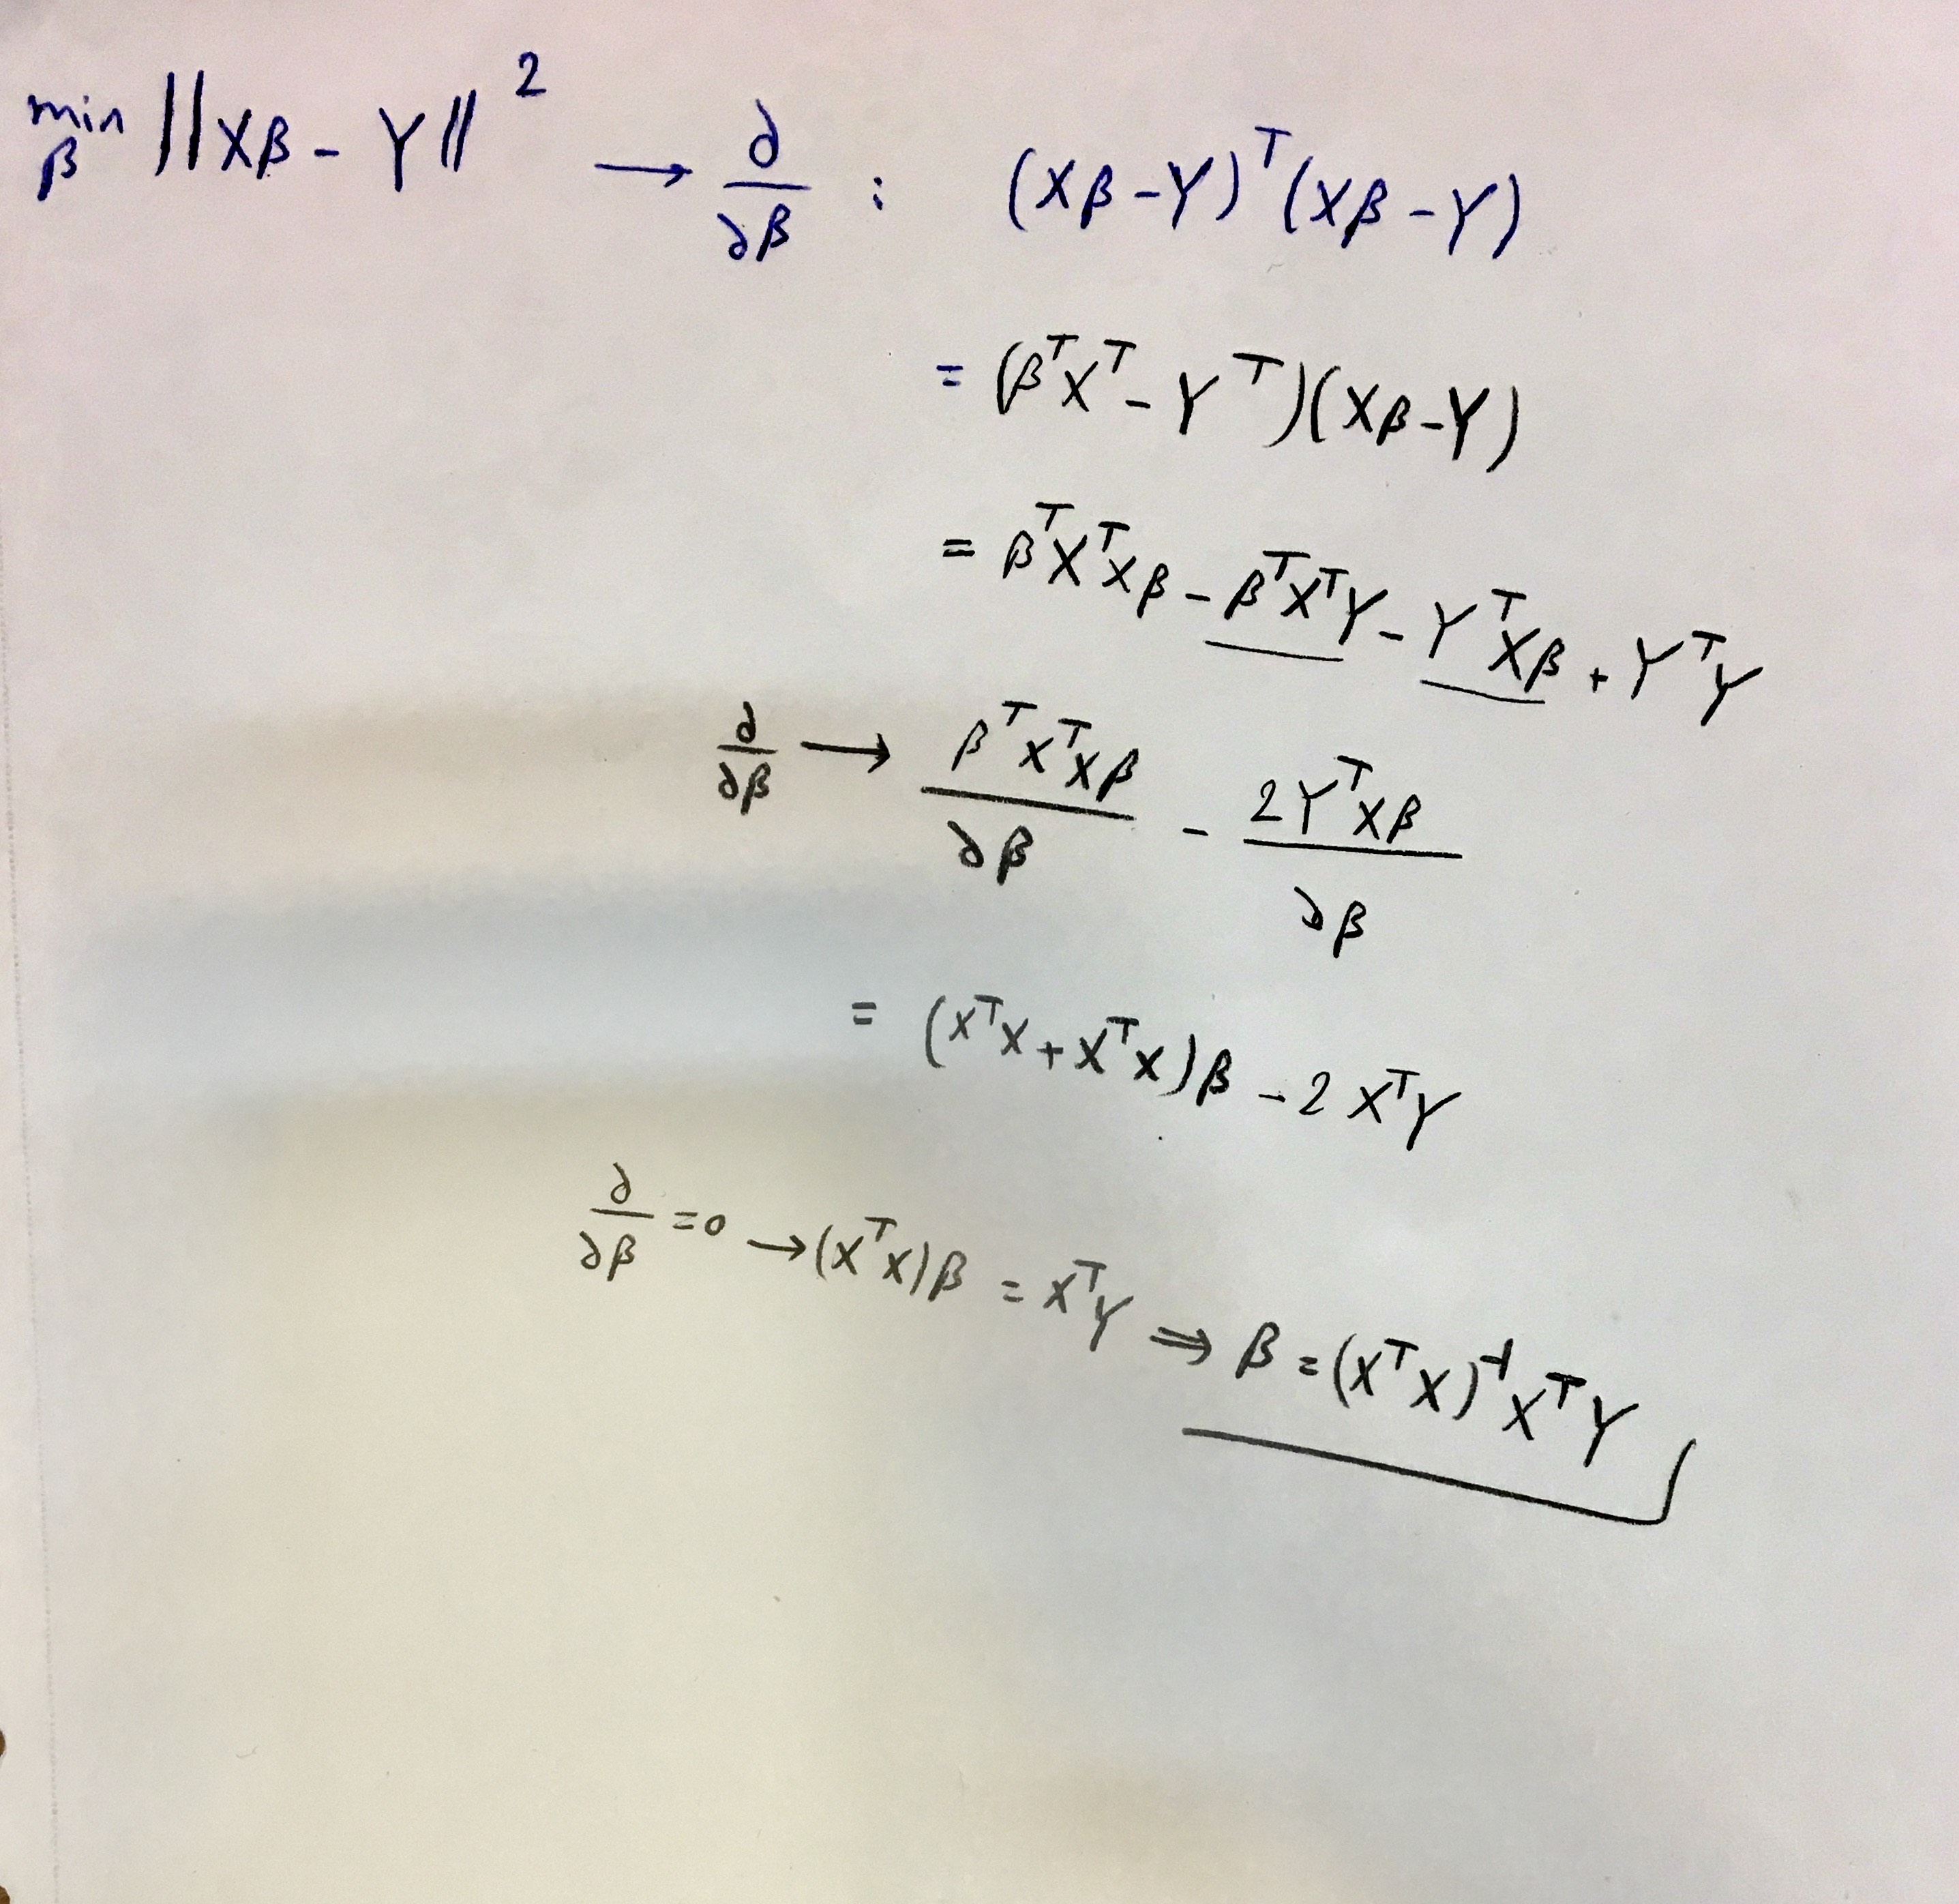 min_β ||Xβ - Y||² → ∂/∂β : (Xβ - Y)ᵀ(Xβ - Y)
= (βᵀXᵀ - Yᵀ)(Xβ - Y)
= βᵀXᵀXβ - βᵀXᵀY - YᵀXβ + YᵀY
∂/∂β → βᵀXᵀXβ/∂β - 2YᵀXβ/∂β
= (XᵀX + XᵀX)β - 2XᵀY
∂/∂β = 0 → (XᵀX)β = XᵀY ⇒ β = (XᵀX)⁻¹XᵀY